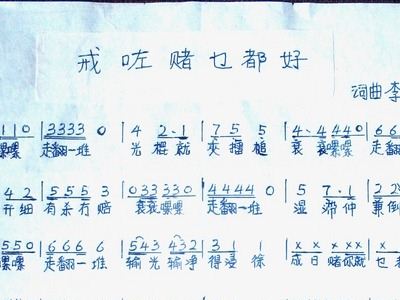 戒咗赌乜都好
词曲李
110 | 3333 0 | 4 2·1 | 7 5 5 | 4·4 440 | 66
走翻一堆 光棍就 夾擂槌 走翻
4 2 | 555 3 | 033330 | 4444 0 | 5 7·1 | 22
开细 有杀冇赔 走翻一堆 湿滞仲 兼倒
550 | 666 6 | 543 432 | 3 1 1 | x x xxx | x
走翻一堆 输光输净 得湿徐 成日赌你就 乜